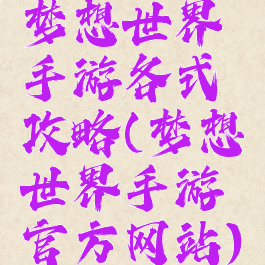 梦想世界
手游各式
攻略(梦想
世界手游
官方网站)